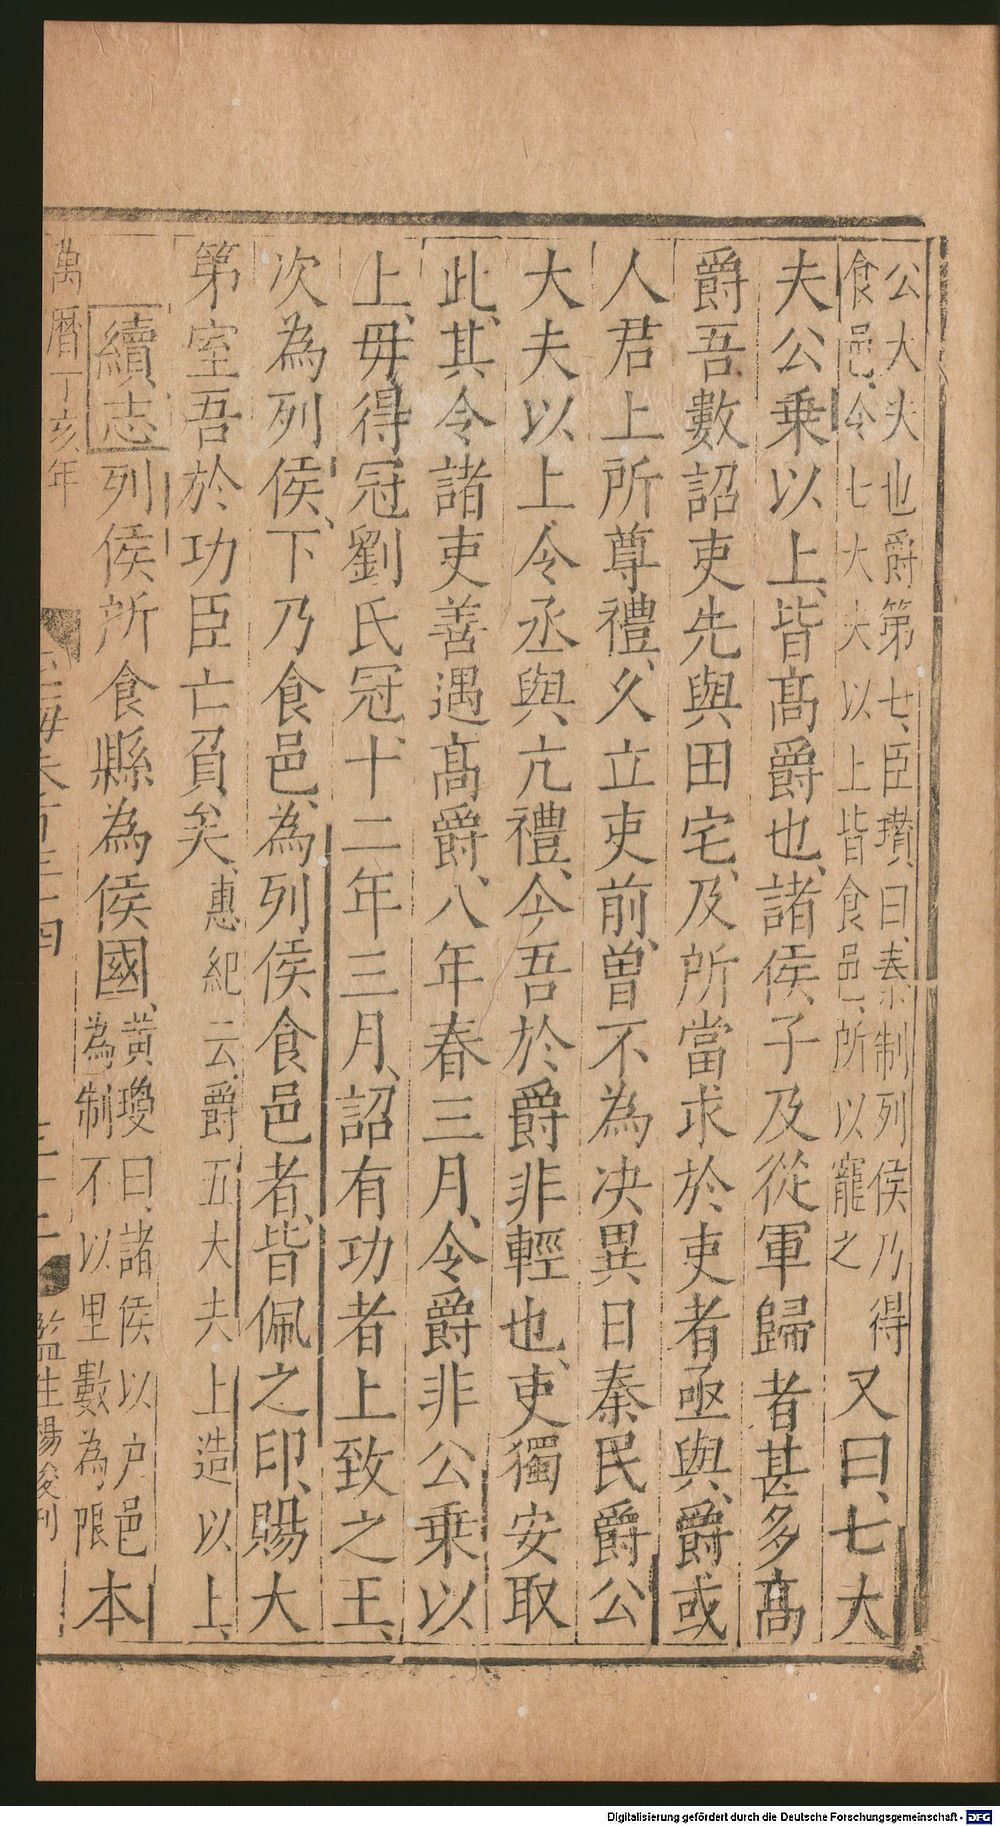 公大夫也爵第七、臣瓉曰、秦制列侯乃得
食邑、令七大夫以上皆食邑、所以寵之
又曰、七大
夫公乗以上、皆髙爵也、諸侯子及從軍歸者甚多髙
爵吾數詔吏先與田宅、及所當求於吏者亟與、爵或
人君上所尊禮、久立吏前、曽不為决異日秦民爵公
大夫以上令丞與亢禮、今吾於爵非輕也、吏獨安取
此、其令諸吏善遇髙爵、八年春三月、令爵非公乗以
上、毋得冠劉氏冠、十二年三月、詔有功者上致之王、
次為列侯、下乃食邑、為列侯食邑者、皆佩之印、賜大
第室吾於功臣亡負矣、惠紀云爵五大夫上造以上、
續志列侯所食縣為侯國、
黃瓊曰、諸侯以户邑
為制不以里數為限
本
萬曆丁亥年
玉海卷百三十四
三十二
監生楊浚刊
Digitalisierung gefördert durch die Deutsche Forschungsgemeinschaft - DFG